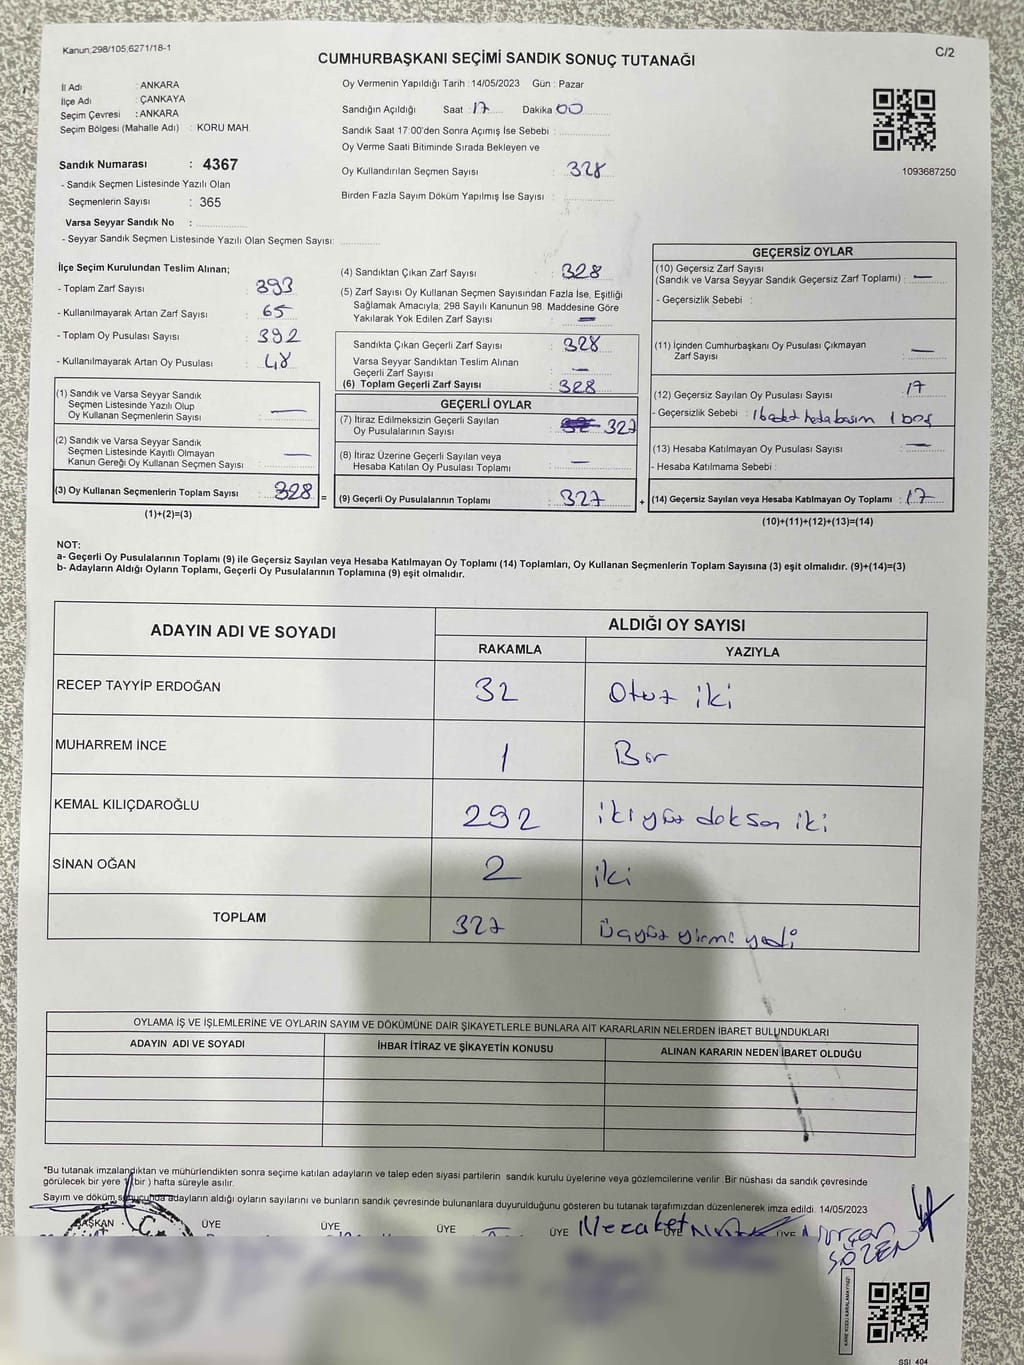 Kanun;298/105;6271/18-1
C/2
CUMHURBAŞKANI SEÇİMİ SANDIK SONUÇ TUTANAĞI
İl Adı : ANKARA
İlçe Adı : ÇANKAYA
Seçim Çevresi : ANKARA
Seçim Bölgesi (Mahalle Adı) : KORU MAH.
Sandık Numarası : 4367
- Sandık Seçmen Listesinde Yazılı Olan
Seçmenlerin Sayısı : 365
Varsa Seyyar Sandık No :
- Seyyar Sandık Seçmen Listesinde Yazılı Olan Seçmen Sayısı:
Oy Vermenin Yapıldığı Tarih : 14/05/2023 Gün : Pazar
Sandığın Açıldığı Saat : 17 Dakika 00
Sandık Saat 17:00'den Sonra Açımış İse Sebebi :
Oy Verme Saati Bitiminde Sırada Bekleyen ve
Oy Kullandırılan Seçmen Sayısı : 328
Birden Fazla Sayım Döküm Yapılmış İse Sayısı :
1093687250
İlçe Seçim Kurulundan Teslim Alınan;
- Toplam Zarf Sayısı : 393
- Kullanılmayarak Artan Zarf Sayısı : 65
- Toplam Oy Pusulası Sayısı : 392
- Kullanılmayarak Artan Oy Pusulası : 48
(1) Sandık ve Varsa Seyyar Sandık
Seçmen Listesinde Yazılı Olup
Oy Kullanan Seçmenlerin Sayısı : —
(2) Sandık ve Varsa Seyyar Sandık
Seçmen Listesinde Kayıtlı Olmayan
Kanun Gereği Oy Kullanan Seçmen Sayısı : —
(3) Oy Kullanan Seçmenlerin Toplam Sayısı : 328 =
(1)+(2)=(3)
(4) Sandıktan Çıkan Zarf Sayısı : 328
(5) Zarf Sayısı Oy Kullanan Seçmen Sayısından Fazla İse, Eşitliği
Sağlamak Amacıyla; 298 Sayılı Kanunun 98. Maddesine Göre
Yakılarak Yok Edilen Zarf Sayısı : —
Sandıkta Çıkan Geçerli Zarf Sayısı : 328
Varsa Seyyar Sandıktan Teslim Alınan
Geçerli Zarf Sayısı : —
(6) Toplam Geçerli Zarf Sayısı : 328
GEÇERLİ OYLAR
(7) İtiraz Edilmeksizin Geçerli Sayılan
Oy Pusulalarının Sayısı : 327
(8) İtiraz Üzerine Geçerli Sayılan veya
Hesaba Katılan Oy Pusulası Toplamı : —
(9) Geçerli Oy Pusulalarının Toplamı : 327 +
GEÇERSİZ OYLAR
(10) Geçersiz Zarf Sayısı
(Sandık ve Varsa Seyyar Sandık Geçersiz Zarf Toplamı) : —
- Geçersizlik Sebebi :
(11) İçinden Cumhurbaşkanı Oy Pusulası Çıkmayan
Zarf Sayısı : —
(12) Geçersiz Sayılan Oy Pusulası Sayısı : 17
- Geçersizlik Sebebi : 1 boş
(13) Hesaba Katılmayan Oy Pusulası Sayısı : —
- Hesaba Katılmama Sebebi :
(14) Geçersiz Sayılan veya Hesaba Katılmayan Oy Toplamı : 17
(10)+(11)+(12)+(13)=(14)
NOT:
a- Geçerli Oy Pusulalarının Toplamı (9) ile Geçersiz Sayılan veya Hesaba Katılmayan Oy Toplamı (14) Toplamları, Oy Kullanan Seçmenlerin Toplam Sayısına (3) eşit olmalıdır. (9)+(14)=(3)
b- Adayların Aldığı Oyların Toplamı, Geçerli Oy Pusulalarının Toplamına (9) eşit olmalıdır.
ADAYIN ADI VE SOYADI ALDIĞI OY SAYISI
RAKAMLA YAZIYLA
RECEP TAYYİP ERDOĞAN 32 Otuz iki
MUHARREM İNCE 1 Bir
KEMAL KILIÇDAROĞLU 292 ikiyüz doksan iki
SİNAN OĞAN 2 iki
TOPLAM 327 üçyüz yirmi yedi
OYLAMA İŞ VE İŞLEMLERİNE VE OYLARIN SAYIM VE DÖKÜMÜNE DAİR ŞİKAYETLERLE BUNLARA AİT KARARLARIN NELERDEN İBARET BULUNDUKLARI
ADAYIN ADI VE SOYADI İHBAR İTİRAZ VE ŞİKAYETİN KONUSU ALINAN KARARIN NEDEN İBARET OLDUĞU
*Bu tutanak imzalandıktan ve mühürlendikten sonra seçime katılan adayların ve talep eden siyasi partilerin sandık kurulu üyelerine veya gözlemcilerine verilir. Bir nüshası da sandık çevresinde
görülecek bir yere 1 (bir ) hafta süreyle asılır.
Sayım ve döküm sonucunda adayların aldığı oyların sayılarını ve bunların sandık çevresinde bulunanlara duyurulduğunu gösteren bu tutanak tarafımızdan düzenlenerek imza edildi. 14/05/2023
BAŞKAN ÜYE ÜYE ÜYE ÜYE Nezaket ÜYE ÜYE Nurcan
SÖZEN
SSI 404